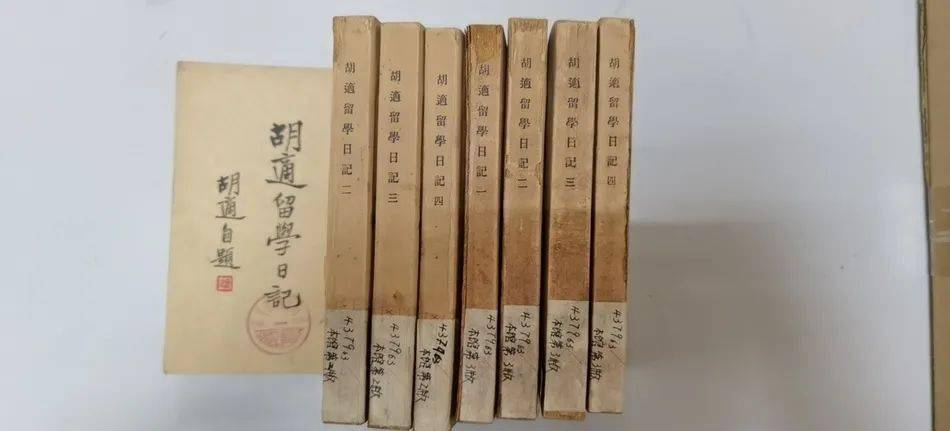 胡適留學日記
一
胡適自題
胡適留學日記二
437963
胡適留學日記三
437963
胡適留學日記四
437963
胡適留學日記一
437963
胡適留學日記二
437963
胡適留學日記三
437963
胡適留學日記四
437963